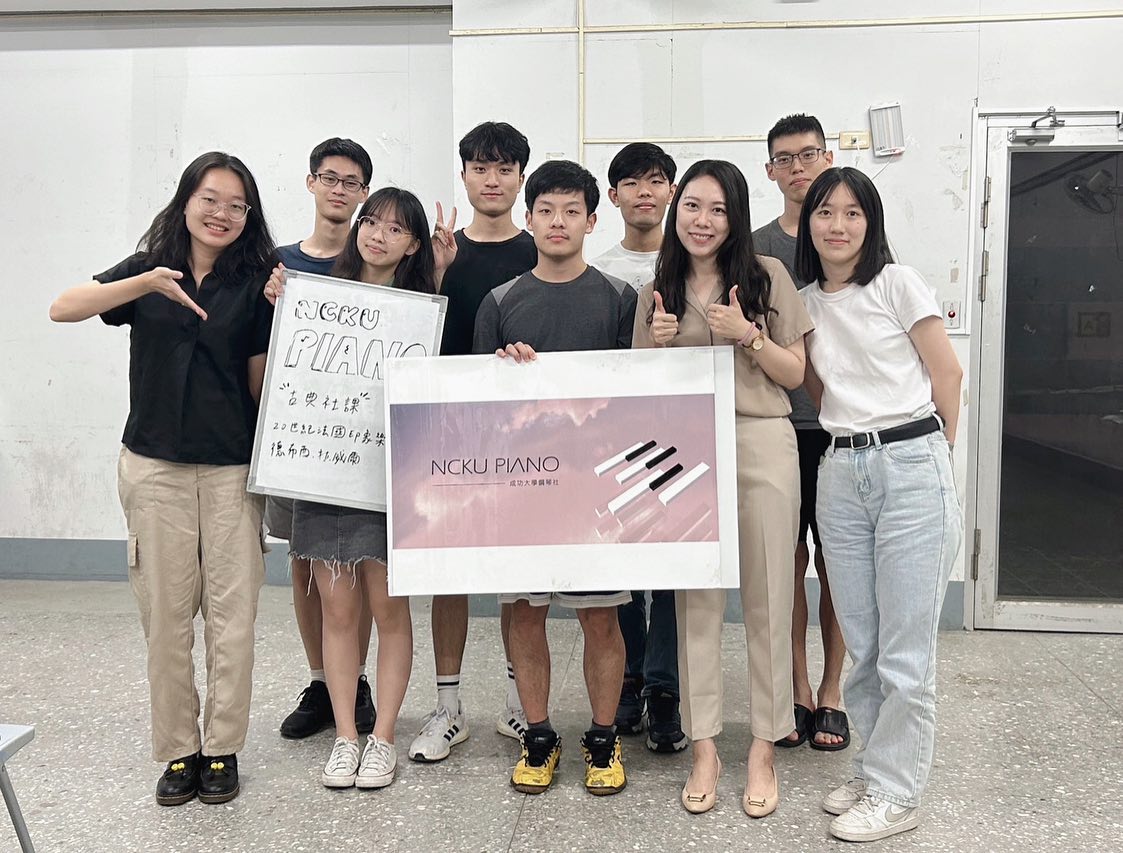 NCKU
PIANO
"古典社課"
20世紀法國印象樂
德布西.拉威爾
NCKU PIANO
成功大學鋼琴社